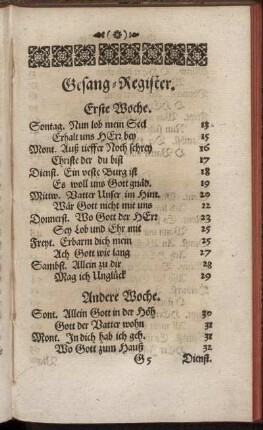 Gesang-Register.
Erste Woche.
Sontag. Nun lob mein Seel 13
Erhalt uns HErr bey 15
Mont. Auß tieffer Noth schrey 16
Christe der du bist 17
Dienst. Ein veste Burg ist 18
Es woll uns Gott gnäd. 19
Mittw. Vatter Unser im Him. 20
Wär Gott nicht mit uns 22
Donnerst. Wo Gott der HErr 23
Sey Lob und Ehr mit 25
Freyt. Erbarm dich mein 25
Ach Gott wie lang 27
Sambst. Allein zu dir 28
Mag ich Unglück 29
Andere Woche.
Sont. Allein Gott in der Höh 30
Gott der Vatter wohn 31
Mont. In dich hab ich geh. 31
Wo Gott zum Hauß 32
G 5 Dienst.